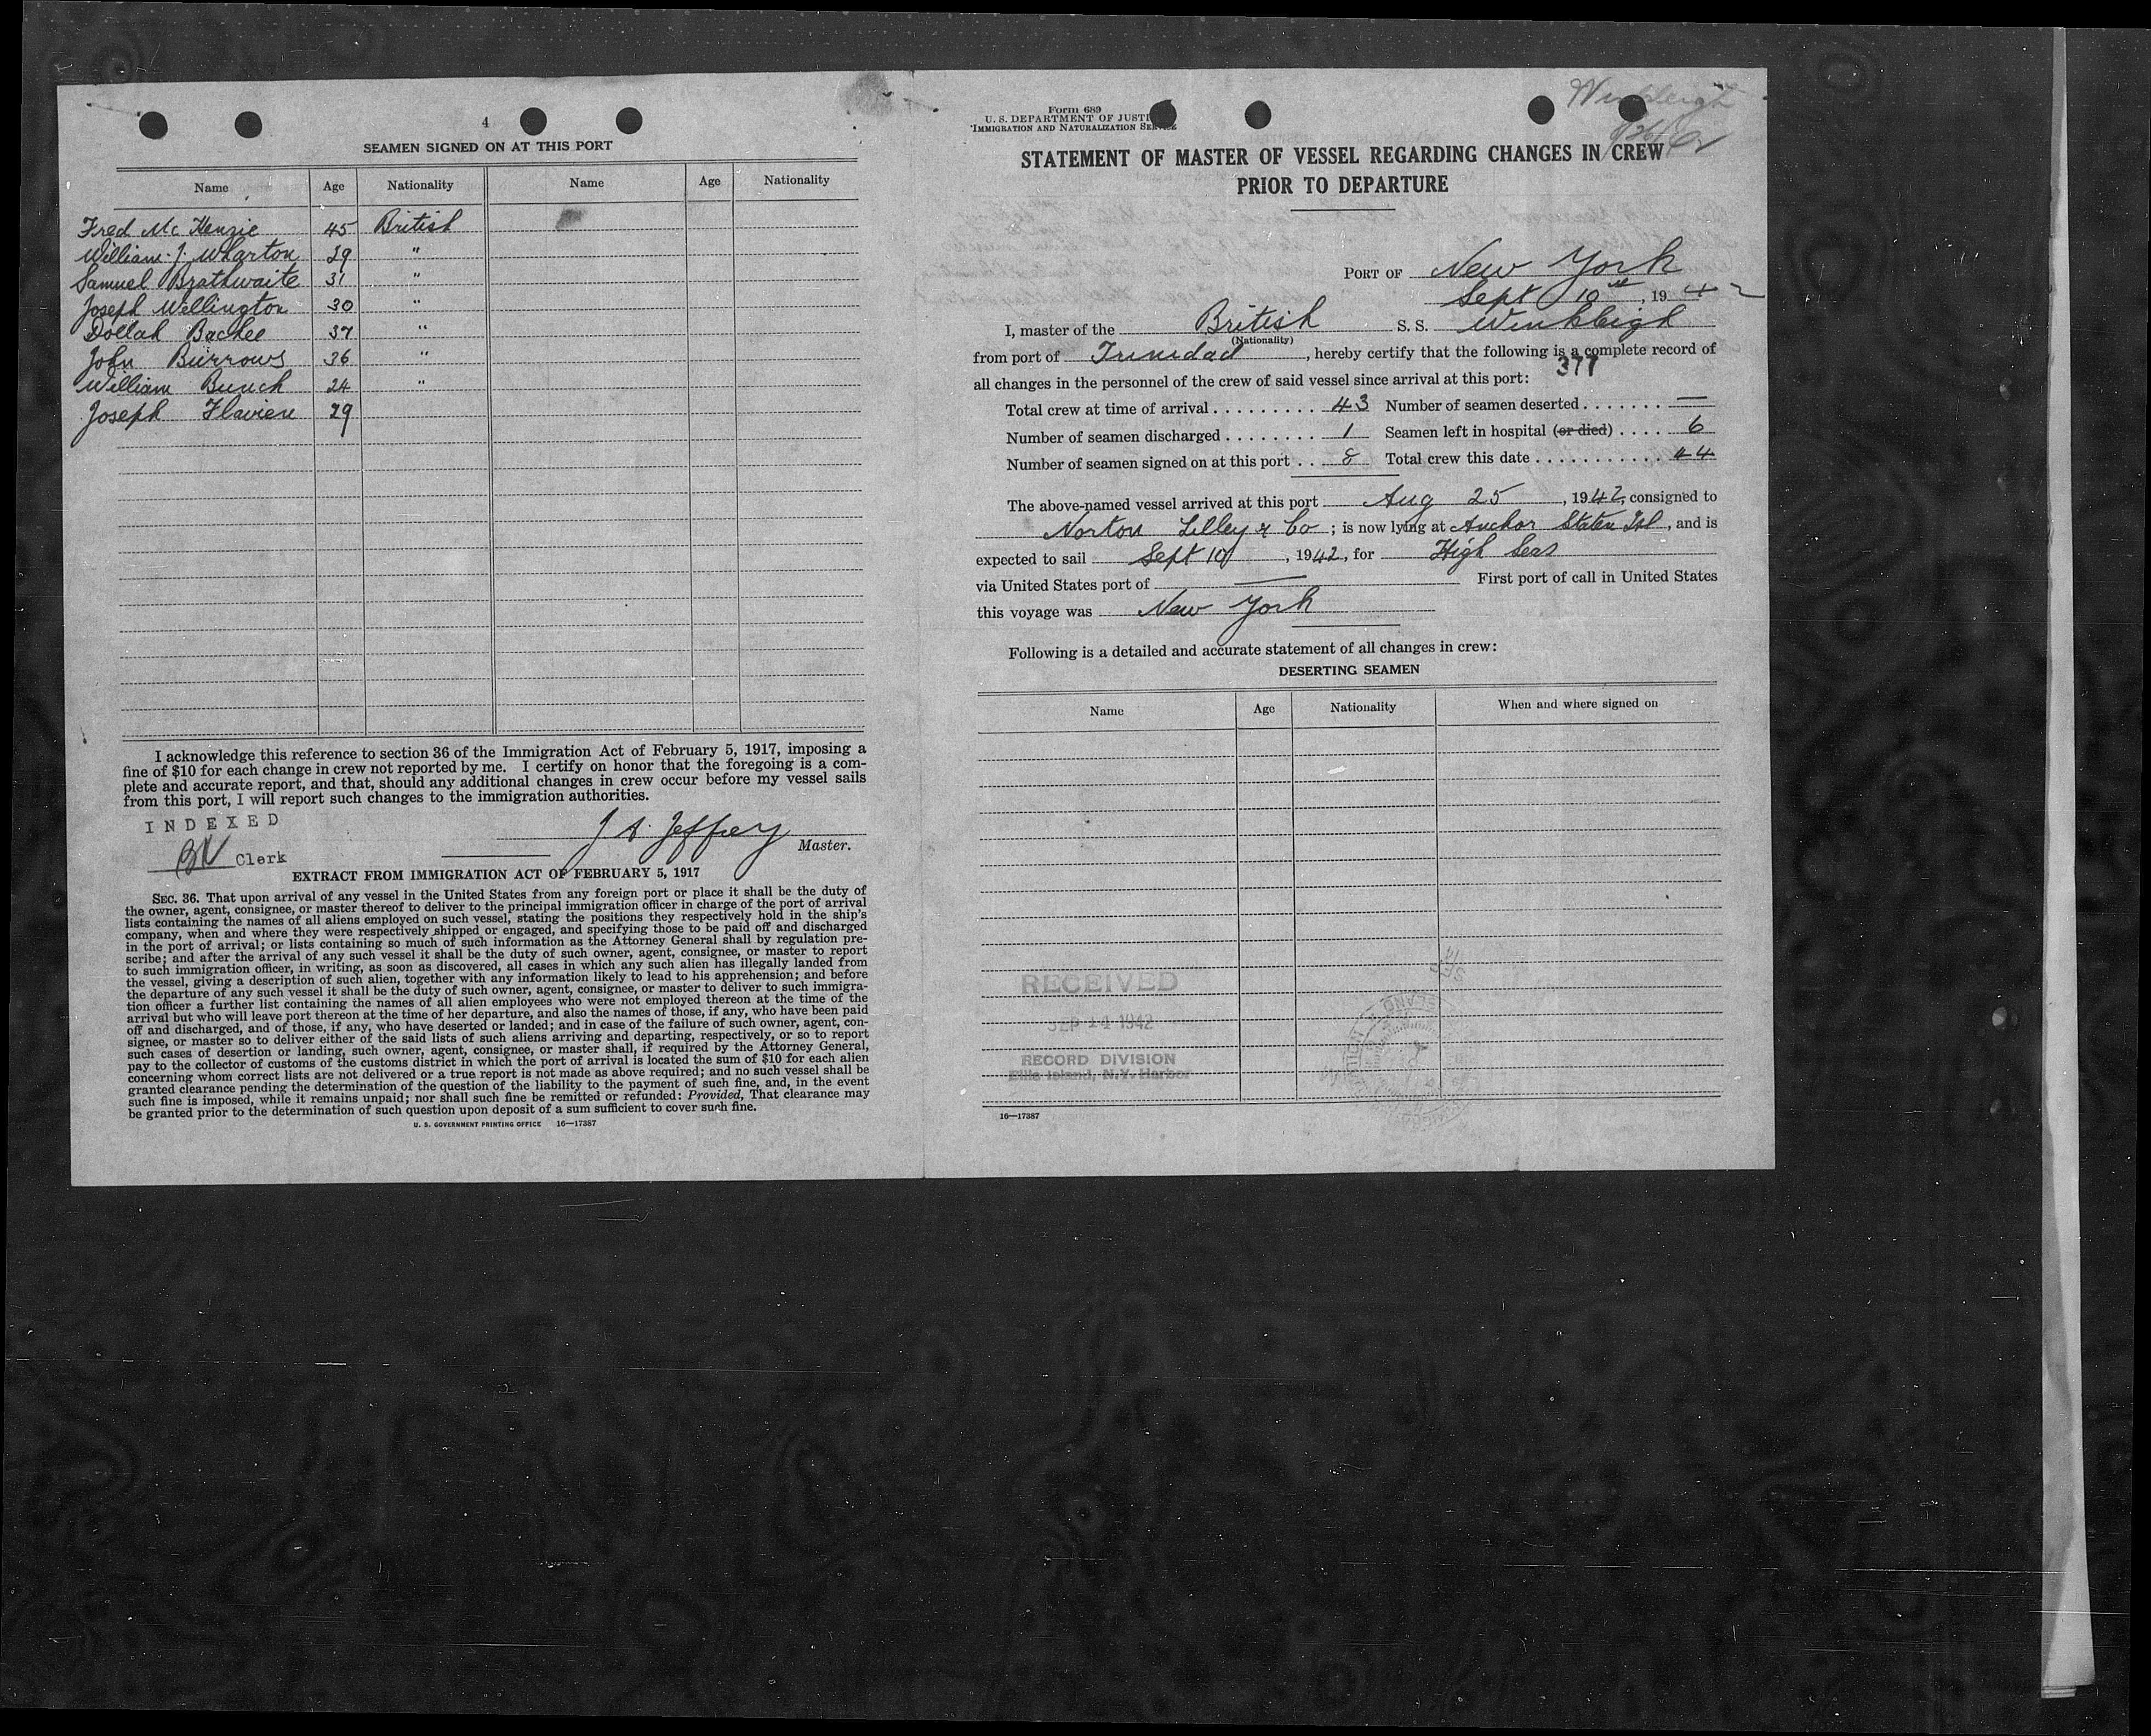 4
SEAMEN SIGNED ON AT THIS PORT
Name Age Nationality Name Age Nationality
Fred Mc Kenzie 45 British
William. J. Wharton 29 "
Samuel Brathwaite 31 "
Joseph Wellington 30 "
Dollah Bachee 37 "
John Burrows 36 "
William Bunch 24 "
Joseph Flavien 29
I acknowledge this reference to section 36 of the Immigration Act of February 5, 1917, imposing a
fine of $10 for each change in crew not reported by me. I certify on honor that the foregoing is a com-
plete and accurate report, and that, should any additional changes in crew occur before my vessel sails
from this port, I will report such changes to the immigration authorities.
INDEXED
BK Clerk
J A. Jeffrey Master.
EXTRACT FROM IMMIGRATION ACT OF FEBRUARY 5, 1917
SEC. 36. That upon arrival of any vessel in the United States from any foreign port or place it shall be the duty of
the owner, agent, consignee, or master thereof to deliver to the principal immigration officer in charge of the port of arrival
lists containing the names of all aliens employed on such vessel, stating the positions they respectively hold in the ship's
company, when and where they were respectively shipped or engaged, and specifying those to be paid off and discharged
in the port of arrival; or lists containing so much of such information as the Attorney General shall by regulation pre-
scribe; and after the arrival of any such vessel it shall be the duty of such owner, agent, consignee, or master to report
to such immigration officer, in writing, as soon as discovered, all cases in which any such alien has illegally landed from
the vessel, giving a description of such alien, together with any information likely to lead to his apprehension; and before
the departure of any such vessel it shall be the duty of such owner, agent, consignee, or master to deliver to such immigra-
tion officer a further list containing the names of all alien employees who were not employed thereon at the time of the
arrival but who will leave port thereon at the time of her departure, and also the names of those, if any, who have been paid
off and discharged, and of those, if any, who have deserted or landed; and in case of the failure of such owner, agent, con-
signee, or master so to deliver either of the said lists of such aliens arriving and departing, respectively, or so to report
such cases of desertion or landing, such owner, agent, consignee, or master shall, if required by the Attorney General,
pay to the collector of customs of the customs district in which the port of arrival is located the sum of $10 for each alien
concerning whom correct lists are not delivered or a true report is not made as above required; and no such vessel shall be
granted clearance pending the determination of the question of the liability to the payment of such fine, and, in the event
such fine is imposed, while it remains unpaid; nor shall such fine be remitted or refunded: Provided, That clearance may
be granted prior to the determination of such question upon deposit of a sum sufficient to cover such fine.
U. S. GOVERNMENT PRINTING OFFICE 16—17387
Winkleigh
Form 689
U. S. DEPARTMENT OF JUSTI
IMMIGRATION AND NATURALIZATION SERVICE
STATEMENT OF MASTER OF VESSEL REGARDING CHANGES IN CREW
PRIOR TO DEPARTURE
PORT OF New York
Sept 10th, 1942
I, master of the British S. S. Winkleigh
(Nationality)
from port of Trinidad, hereby certify that the following is a complete record of
377
all changes in the personnel of the crew of said vessel since arrival at this port:
Total crew at time of arrival . . . . . . . . . 43 Number of seamen deserted . . . . . . . —
Number of seamen discharged . . . . . . . . 1 Seamen left in hospital (or died) . . . . 6
Number of seamen signed on at this port . . 8 Total crew this date . . . . . . . . . . . 44
The above-named vessel arrived at this port Aug 25, 1942, consigned to
Norton Lilley & Co; is now lying at Anchor Staten Isl, and is
expected to sail Sept 10, 1942, for High Seas
via United States port of — First port of call in United States
this voyage was New York
Following is a detailed and accurate statement of all changes in crew:
DESERTING SEAMEN
Name Age Nationality When and where signed on
RECEIVED
SEP 14 1942
RECORD DIVISION
Ellis Island, N.Y. Harbor
16—17387